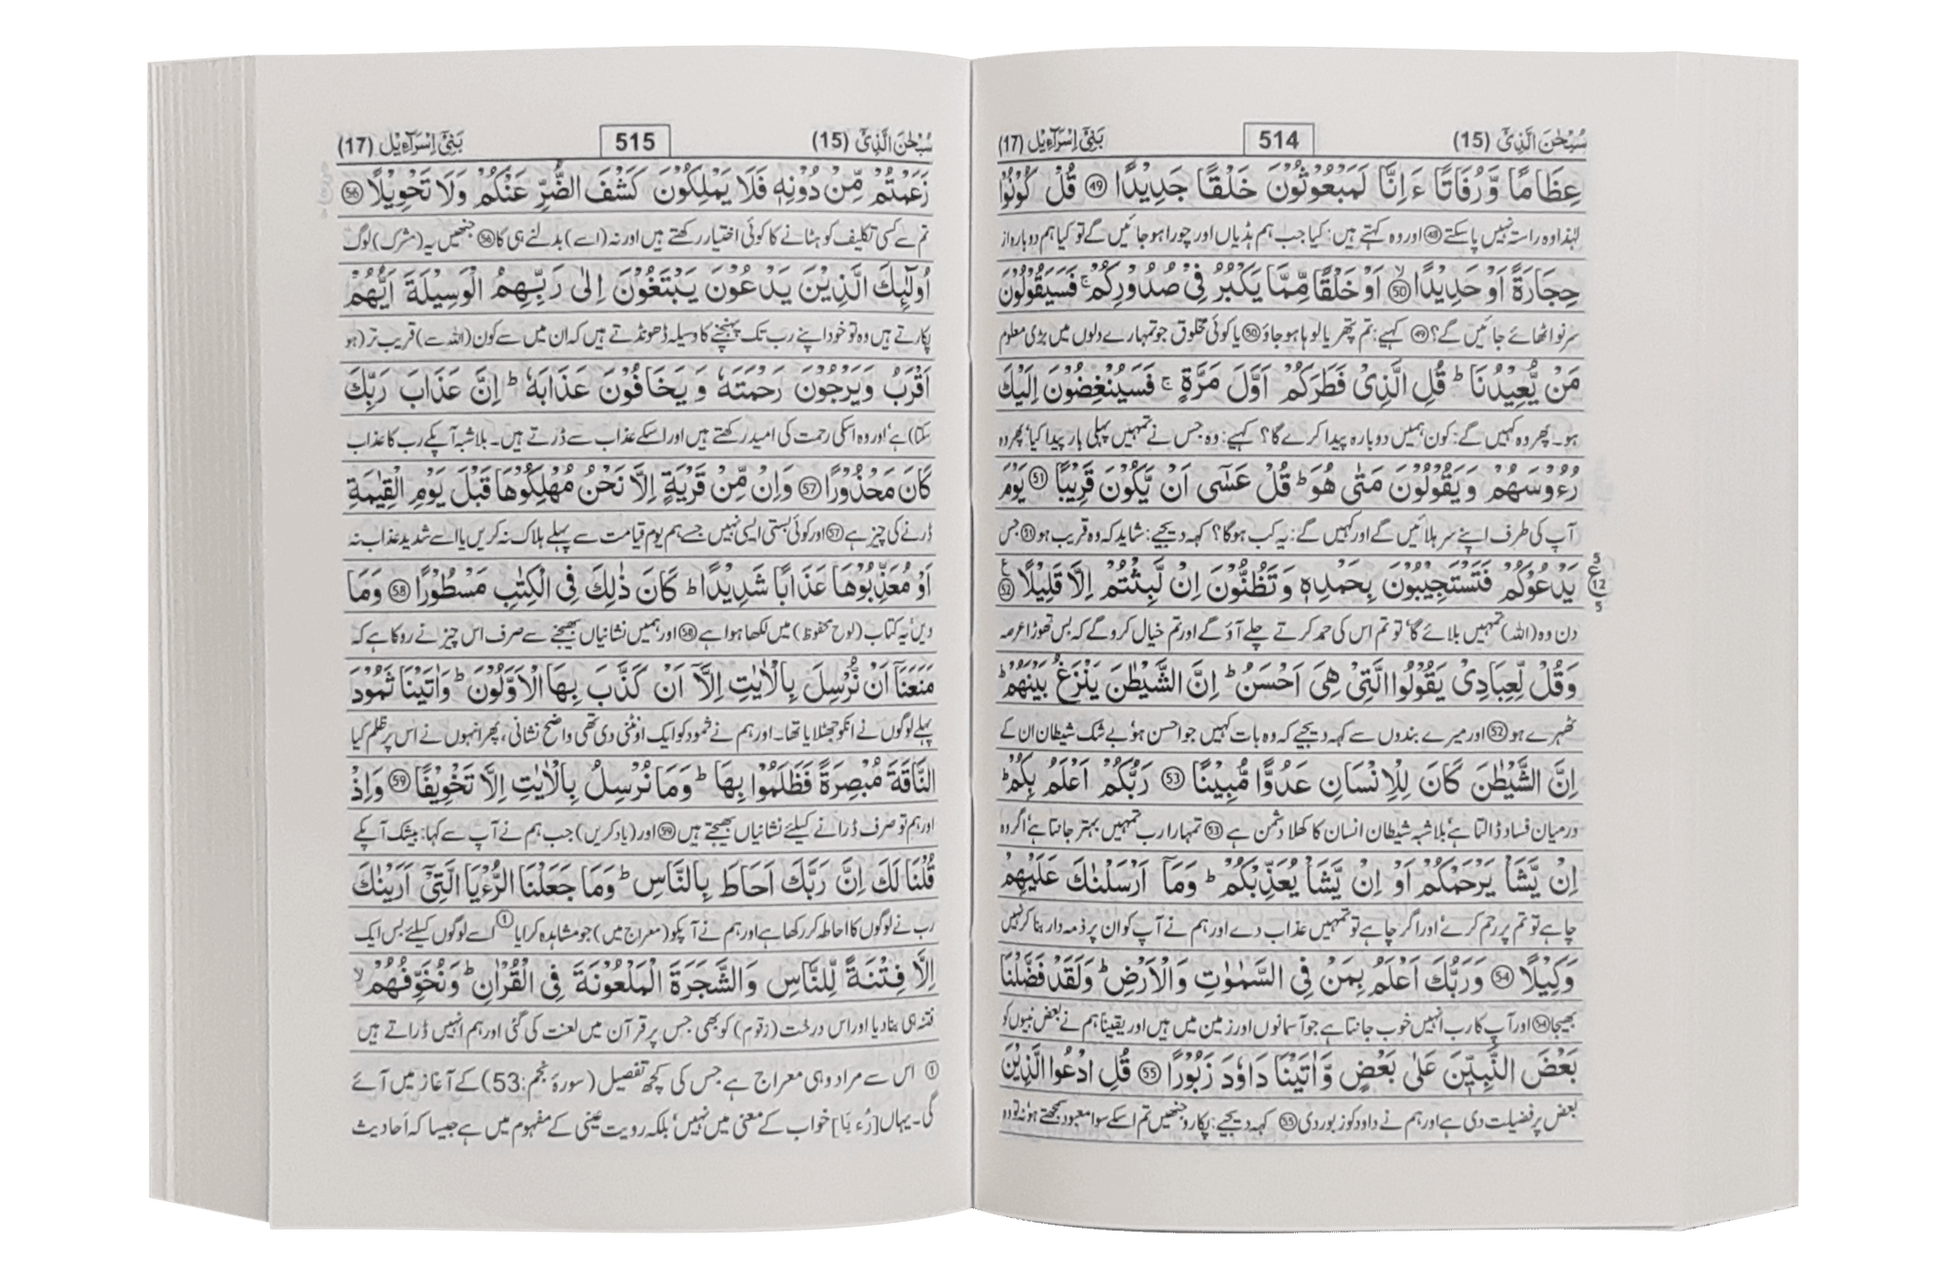 سُبْحٰنَ الَّذِیْٓ (15)
514
بَنِیْٓ اِسْرَآءِیْل (17)
عِظَامًا وَّرُفَاتًا ءَاِنَّا لَمَبْعُوْثُوْنَ خَلْقًا جَدِیْدًا ㊾ قُلْ كُوْنُوْا
لہٰذا وہ راستہ نہیں پا سکتے ㊽ اور وہ کہتے ہیں: کیا جب ہم ہڈیاں اور چورا ہو جائیں گے تو کیا ہم دوبارہ از
حِجَارَةً اَوْ حَدِیْدًا ㊿ۙ اَوْ خَلْقًا مِّمَّا یَكْبُرُ فِیْ صُدُوْرِكُمْ ۚ فَسَیَقُوْلُوْنَ
سرنو اٹھائے جائیں گے؟ ㊾ کہیے: تم پتھر یا لوہا ہو جاؤ ㊿ یا کوئی مخلوق جو تمہارے دلوں میں بڑی معلوم
مَنْ یُّعِیْدُنَا ؕ قُلِ الَّذِیْ فَطَرَكُمْ اَوَّلَ مَرَّةٍ ۚ فَسَیُنْغِضُوْنَ اِلَیْكَ
ہو۔ پھر وہ کہیں گے: کون ہمیں دوبارہ پیدا کرے گا؟ کہیے: وہ جس نے تمہیں پہلی بار پیدا کیا' پھر وہ
رُءُوْسَهُمْ وَیَقُوْلُوْنَ مَتٰی هُوَ ؕ قُلْ عَسٰۤی اَنْ یَّكُوْنَ قَرِیْبًا (51) یَوْمَ
آپ کی طرف اپنے سر ہلائیں گے اور کہیں گے: یہ کب ہوگا؟ کہہ دیجیے: شاید کہ وہ قریب ہو (51) جس
یَدْعُوْكُمْ فَتَسْتَجِیْبُوْنَ بِحَمْدِهٖ وَتَظُنُّوْنَ اِنْ لَّبِثْتُمْ اِلَّا قَلِیْلًا (52) ع
5
ع
12
5
دن وہ (اللہ) تمہیں بلائے گا' تو تم اس کی حمد کرتے چلے آؤ گے اور تم خیال کرو گے کہ بس تھوڑا عرصہ
وَقُلْ لِّعِبَادِیْ یَقُوْلُوا الَّتِیْ هِیَ اَحْسَنُ ؕ اِنَّ الشَّیْطٰنَ یَنْزَغُ بَیْنَهُمْ ؕ
ٹھہرے ہو (52) اور میرے بندوں سے کہہ دیجیے کہ وہ بات کہیں جو احسن ہو' بے شک شیطان ان کے
اِنَّ الشَّیْطٰنَ كَانَ لِلْاِنْسَانِ عَدُوًّا مُّبِیْنًا (53) رَبُّكُمْ اَعْلَمُ بِكُمْ ؕ
درمیان فساد ڈالتا ہے' بلاشبہ شیطان انسان کا کھلا دشمن ہے (53) تمہارا رب تمہیں بہتر جانتا ہے' اگر وہ
اِنْ یَّشَاْ یَرْحَمْكُمْ اَوْ اِنْ یَّشَاْ یُعَذِّبْكُمْ ؕ وَمَاۤ اَرْسَلْنٰكَ عَلَیْهِمْ
چاہے تو تم پر رحم کرے' اور اگر چاہے تو تمہیں عذاب دے اور ہم نے آپ کو ان پر ذمہ دار بنا کر نہیں
وَكِیْلًا (54) وَرَبُّكَ اَعْلَمُ بِمَنْ فِی السَّمٰوٰتِ وَالْاَرْضِ ؕ وَلَقَدْ فَضَّلْنَا
بھیجا (54) اور آپ کا رب انہیں خوب جانتا ہے جو آسمانوں اور زمین میں ہیں اور یقیناً ہم نے بعض نبیوں کو
بَعْضَ النَّبِیّٖنَ عَلٰی بَعْضٍ وَّاٰتَیْنَا دَاوٗدَ زَبُوْرًا (55) قُلِ ادْعُوا الَّذِیْنَ
بعض پر فضیلت دی ہے اور ہم نے داود کو زبور دی (55) کہہ دیجیے: پکارو جنھیں تم اسکے سوا معبود سمجھتے ہو' نہ تو وہ
سُبْحٰنَ الَّذِیْٓ (15)
515
بَنِیْٓ اِسْرَآءِیْل (17)
زَعَمْتُمْ مِّنْ دُوْنِهٖ فَلَا یَمْلِكُوْنَ كَشْفَ الضُّرِّ عَنْكُمْ وَلَا تَحْوِیْلًا (56)
تم سے کسی تکلیف کو ہٹانے کا کوئی اختیار رکھتے ہیں اور نہ (اسے) بدلنے ہی کا (56) جنھیں یہ (مشرک) لوگ
اُولٰٓىِٕكَ الَّذِیْنَ یَدْعُوْنَ یَبْتَغُوْنَ اِلٰی رَبِّهِمُ الْوَسِیْلَةَ اَیُّهُمْ
پکارتے ہیں وہ تو خود اپنے رب تک پہنچنے کا وسیلہ ڈھونڈتے ہیں کہ ان میں سے کون (اللہ سے) قریب تر (ہو
اَقْرَبُ وَیَرْجُوْنَ رَحْمَتَهٗ وَیَخَافُوْنَ عَذَابَهٗ ؕ اِنَّ عَذَابَ رَبِّكَ
سکتا) ہے' اور وہ اسکی رحمت کی امید رکھتے ہیں اور اسکے عذاب سے ڈرتے ہیں۔ بلاشبہ آپکے رب کا عذاب
كَانَ مَحْذُوْرًا (57) وَاِنْ مِّنْ قَرْیَةٍ اِلَّا نَحْنُ مُهْلِكُوْهَا قَبْلَ یَوْمِ الْقِیٰمَةِ
ڈرنے کی چیز ہے (57) اور کوئی بستی ایسی نہیں جسے ہم یوم قیامت سے پہلے ہلاک نہ کریں یا اسے شدید عذاب نہ
اَوْ مُعَذِّبُوْهَا عَذَابًا شَدِیْدًا ؕ كَانَ ذٰلِكَ فِی الْكِتٰبِ مَسْطُوْرًا (58) وَمَا
دیں' یہ کتاب (لوح محفوظ) میں لکھا ہوا ہے (58) اور ہمیں نشانیاں بھیجنے سے صرف اس چیز نے روکا ہے کہ
مَنَعَنَاۤ اَنْ نُّرْسِلَ بِالْاٰیٰتِ اِلَّاۤ اَنْ كَذَّبَ بِهَا الْاَوَّلُوْنَ ؕ وَاٰتَیْنَا ثَمُوْدَ
پہلے لوگوں نے انکو جھٹلایا تھا۔ اور ہم نے ثمود کو ایک اونٹنی دی تھی واضح نشانی، پھر انہوں نے اس پر ظلم کیا
النَّاقَةَ مُبْصِرَةً فَظَلَمُوْا بِهَا ؕ وَمَا نُرْسِلُ بِالْاٰیٰتِ اِلَّا تَخْوِیْفًا (59) وَاِذْ
اور ہم تو صرف ڈرانے کیلئے نشانیاں بھیجتے ہیں (59) اور (یاد کریں) جب ہم نے آپ سے کہا: بیشک آپکے
قُلْنَا لَكَ اِنَّ رَبَّكَ اَحَاطَ بِالنَّاسِ ؕ وَمَا جَعَلْنَا الرُّءْیَا الَّتِیْۤ اَرَیْنٰكَ
رب نے لوگوں کا احاطہ کر رکھا ہے اور ہم نے آپکو (معراج میں) جو مشاہدہ کرایا ① اسے لوگوں کیلئے بس ایک
اِلَّا فِتْنَةً لِّلنَّاسِ وَالشَّجَرَةَ الْمَلْعُوْنَةَ فِی الْقُرْاٰنِ ؕ وَنُخَوِّفُهُمْ ۙ
فتنہ ہی بنا دیا اور اس درخت (زقوم) کو بھی جس پر قرآن میں لعنت کی گئی اور ہم انہیں ڈراتے ہیں
① اس سے مراد وہی معراج ہے جس کی کچھ تفصیل (سورۂ نجم:53) کے آغاز میں آئے
گی۔ یہاں [رُءیَا] خواب کے معنی میں نہیں' بلکہ رویت عینی کے مفہوم میں ہے جیسا کہ احادیث